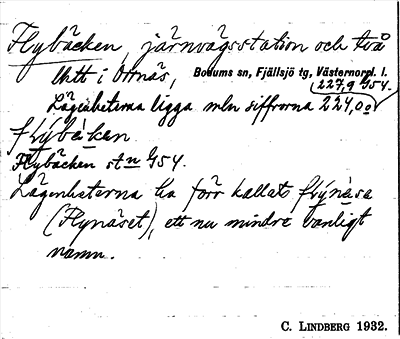 Flybäcken, järnvägsstation och två
lht. i Ormnäs, Bodums sn, Fjällsjö tg, Västernorrl. l.
227,9 G54.
Lägenheterna ligga mln siffrorna 224,00
flýbäken
Flybäcken st:n G54.
Lägenheterna ha förr kallats flýnäsa
(Flynäset), ett nu mindre vanligt
namn.
C. LINDBERG 1932.